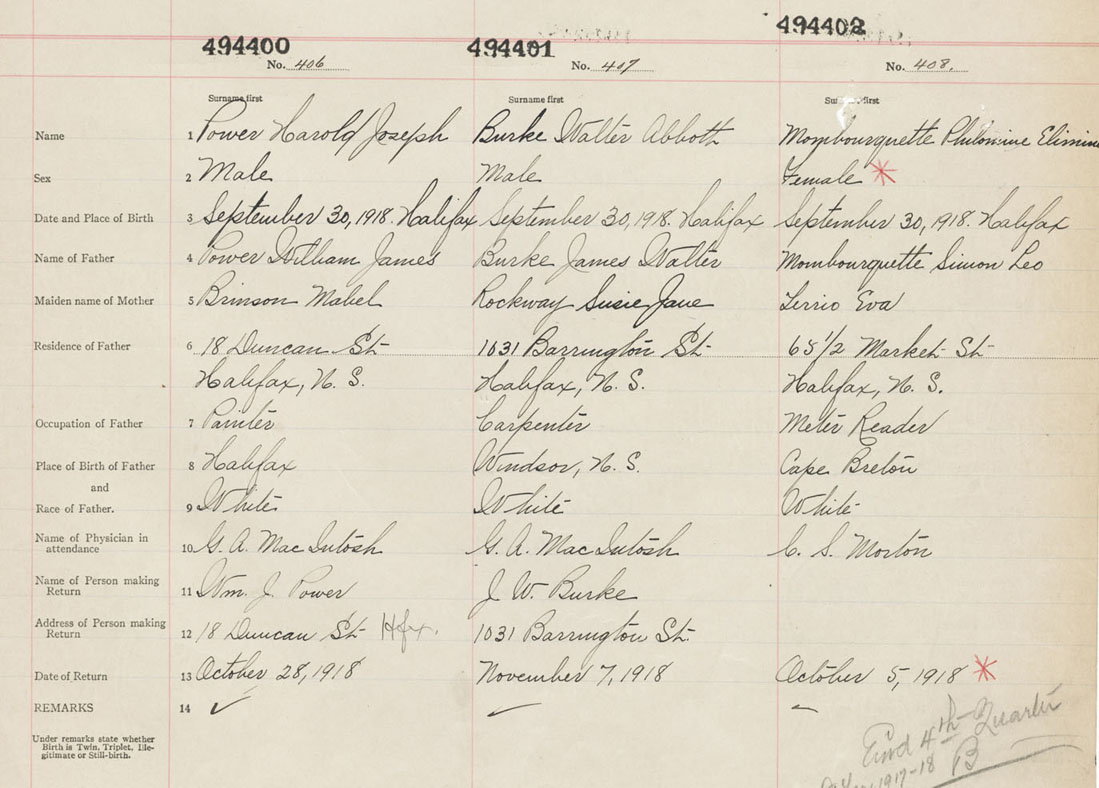 494400 494401 494402
No. 406 No. 407 No. 408.
Surname first Surname first Surname first
Name 1 Power Harold Joseph Burke Walter Abbott Mombourquette Philomine
Sex 2 Male Male Female *
Date and Place of Birth 3 September 30, 1918. Halifax September 30, 1918. Halifax September 30, 1918. Halifax
Name of Father 4 Power William James Burke James Walter Mombourquette Simon Leo
Maiden name of Mother 5 Brinson Mabel Rockway Susie Jane Terrio Eva
Residence of Father 6 18 Duncan St 1031 Barrington St 65 1/2 Market St
Halifax, N. S. Halifax, N. S. Halifax, N. S.
Occupation of Father 7 Painter Carpenter Meter Reader
Place of Birth of Father 8 Halifax Windsor, N. S. Cape Breton
and
Race of Father. 9 White White White
Name of Physician in
attendance 10 G. A. MacIntosh G. A. MacIntosh C. S. Morton
Name of Person making
Return 11 Wm. J. Power J. W. Burke
Address of Person making
Return 12 18 Duncan St Hfx. 1031 Barrington St.
Date of Return 13 October 28, 1918 November 7, 1918 October 5, 1918 *
REMARKS 14 ✓
Under remarks state whether
Birth is Twin, Triplet, Ille-
gitimate or Still-birth.
End 4th Quarter
1917-18 B